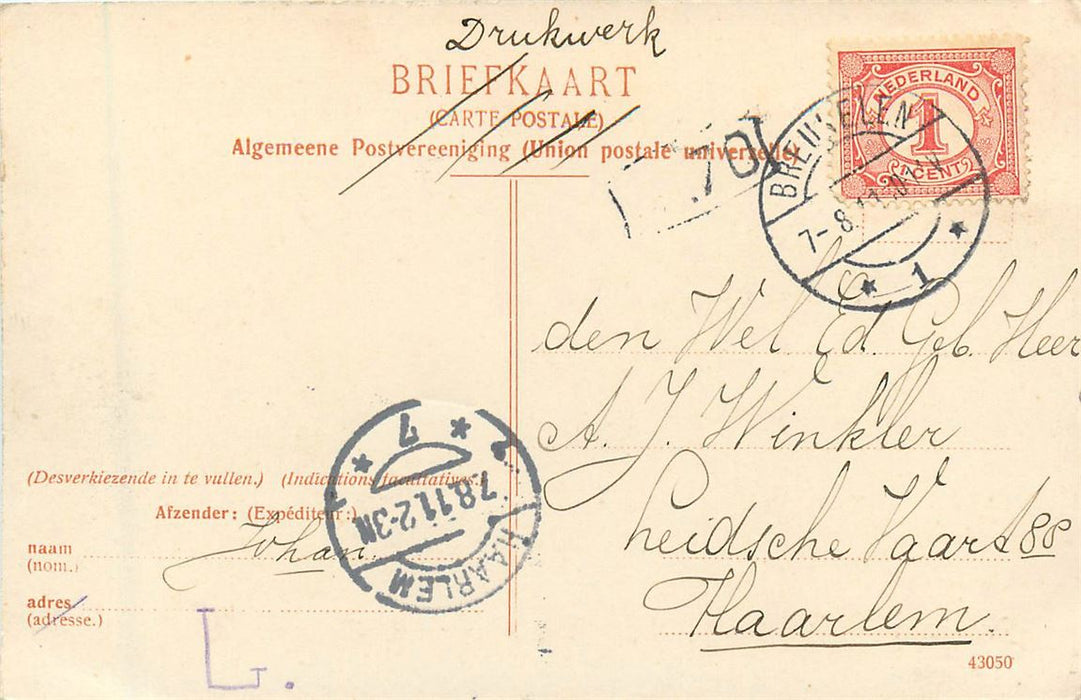 Drukwerk
BRIEFKAART
(CARTE POSTALE)
Algemeene Postvereeniging (Union postale universelle)
NEDERLAND
1
CENT
BREUKELEN
7-8 11
1
70
den Wel Ed. Geb. Heer
A. J. Winkler
Leidsche Vaart 88
Haarlem.
7
7.8.11.2-3N
HAARLEM
(Desverkiezende in te vullen.) (Indications facultatives.)
Afzender: (Expéditeur:)
naam Johan.
(nom.)
adres
(adresse.)
L.
43050